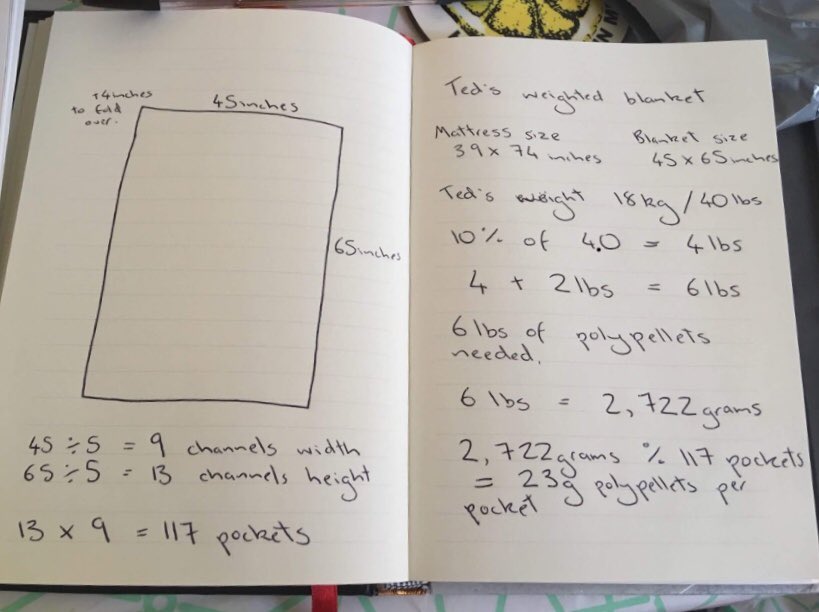 +4inches
to fold
over.
45inches
65inches
45 ÷ 5 = 9 channels width
65 ÷ 5 = 13 channels height
13 x 9 = 117 pockets
Ted's weighted blanket
Mattress size
39 x 74 inches
Blanket size
45 x 65 inches
Ted's weight 18kg/40lbs
10% of 4.0 = 4lbs
4 + 2lbs = 6lbs
6lbs of polypellets
needed.
6 lbs = 2,722grams
2,722grams % 117 pockets
= 23g polypellets per
pocket